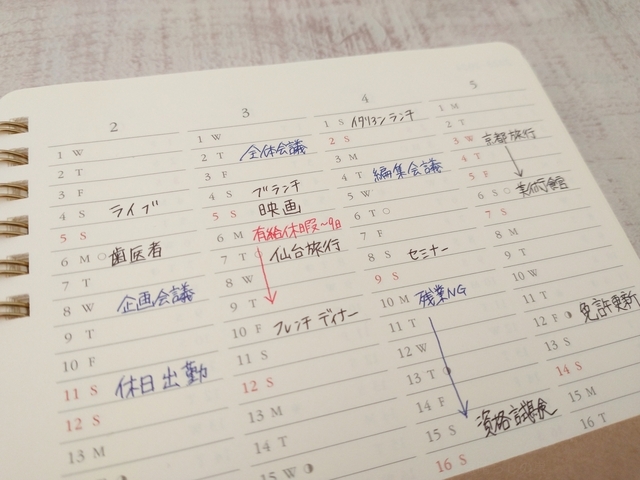 2
1 W
2 T
3 F
4 S ライブ
5 S
6 M 歯医者
7 T
8 W 企画会議
9 T
10 F
11 S 休日出勤
12 S
13 M
3
1 W
2 T 全体会議
3 F
4 S ブランチ
5 S 映画
6 M 有給休暇~9日
7 T 仙台旅行
8 W
9 T
10 F フレンチディナー
11 S
12 S
13 M
14 T
15 W
4
1 S イタリアンランチ
2 S
3 M
4 T 編集会議
5 W
6 T
7 F
8 S セミナー
9 S
10 M 残業NG
11 T
12 W
13 T
14 F
15 S 資格試験
16 S
5
1 M
2 T
3 W 京都旅行
4 T
5 F
6 S 美術館
7 S
8 M
9 T
10 W
11 T
12 F 免許更新
13 S
14 S
15 M
16 T